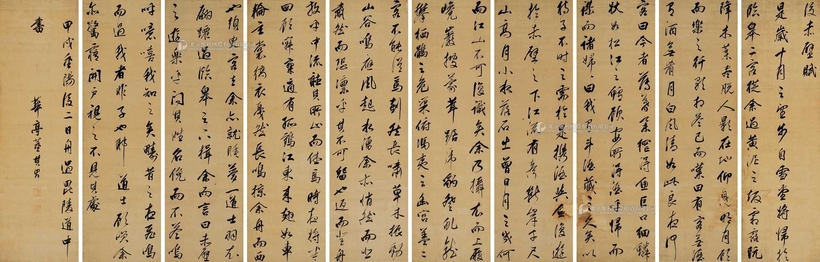 後赤壁賦
是歲十月之望步自雪堂將歸於
臨皋二客從余過黃泥之坂霜露既
降木葉盡脫人影在地仰見明月顧
而樂之行歌相答已而歎曰有客無
酒有酒無肴月白風清如此良夜何
客曰今者薄暮舉網得魚巨口細鱗
狀如松江之鱸顧安所得酒乎歸而
謀諸婦婦曰我有斗酒藏之久矣以
待子不時之需於是攜酒與魚復遊
於赤壁之下江流有聲斷岸千尺
山高月小水落石出曾日月之幾何
而江山不可復識矣余乃攝衣而上履
巉巖披蒙茸踞虎豹登虬龍
攀棲鶻之危巢俯馮夷之幽宮蓋二
客不能從焉劃然長嘯草木振動
山谷鳴應風起水涌余亦悄然而悲
肅然而恐凜乎其不可留也返而登舟
放乎中流聽其所止而休焉時夜將半
四顧寂寥適有孤鶴橫江東來翅如車
輪玄裳縞衣戛然長鳴掠余舟而西
也須臾客去余亦就睡夢一道士羽衣
翩躚過臨皋之下揖余而言曰赤壁
之遊樂乎問其姓名俛而不答嗚
呼噫嘻我知之矣疇昔之夜飛鳴
而過我者非子也耶道士顧笑余
亦驚寤開戶視之不見其處
甲戌重陽後二日舟過毘陵道中
書 華亭董其昌